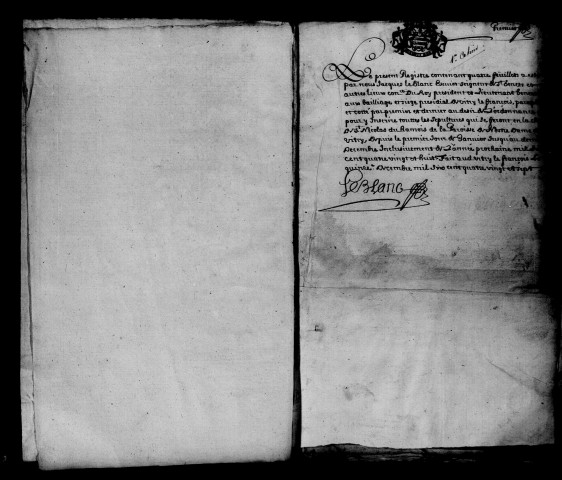 Premier
Le present Registre contenant quatre feuillets a esté
par nous Jacques le Blanc Escuier seigneur de
autres lieux con.er Du Roy president et Lieutenant
aux bailliage et siege presidial de vitry le françois, paraphé
et cotté par premier et dernier au desir de l'ordonnance
pour y Inscrire touttes les sepultures qui se feront en la
de St Nicolas de la Paroisse de Nostre Dame
vitry, Depuis le premier Jour de Janvier Jusqu'au dernier
Decembre Inclusivement de L'année prochaine mil six
cent quatre vingt et huit. Fait aud vitry le françois le
quinze.e Decembre mil six cent quatre vingt et sept
Le Blanc